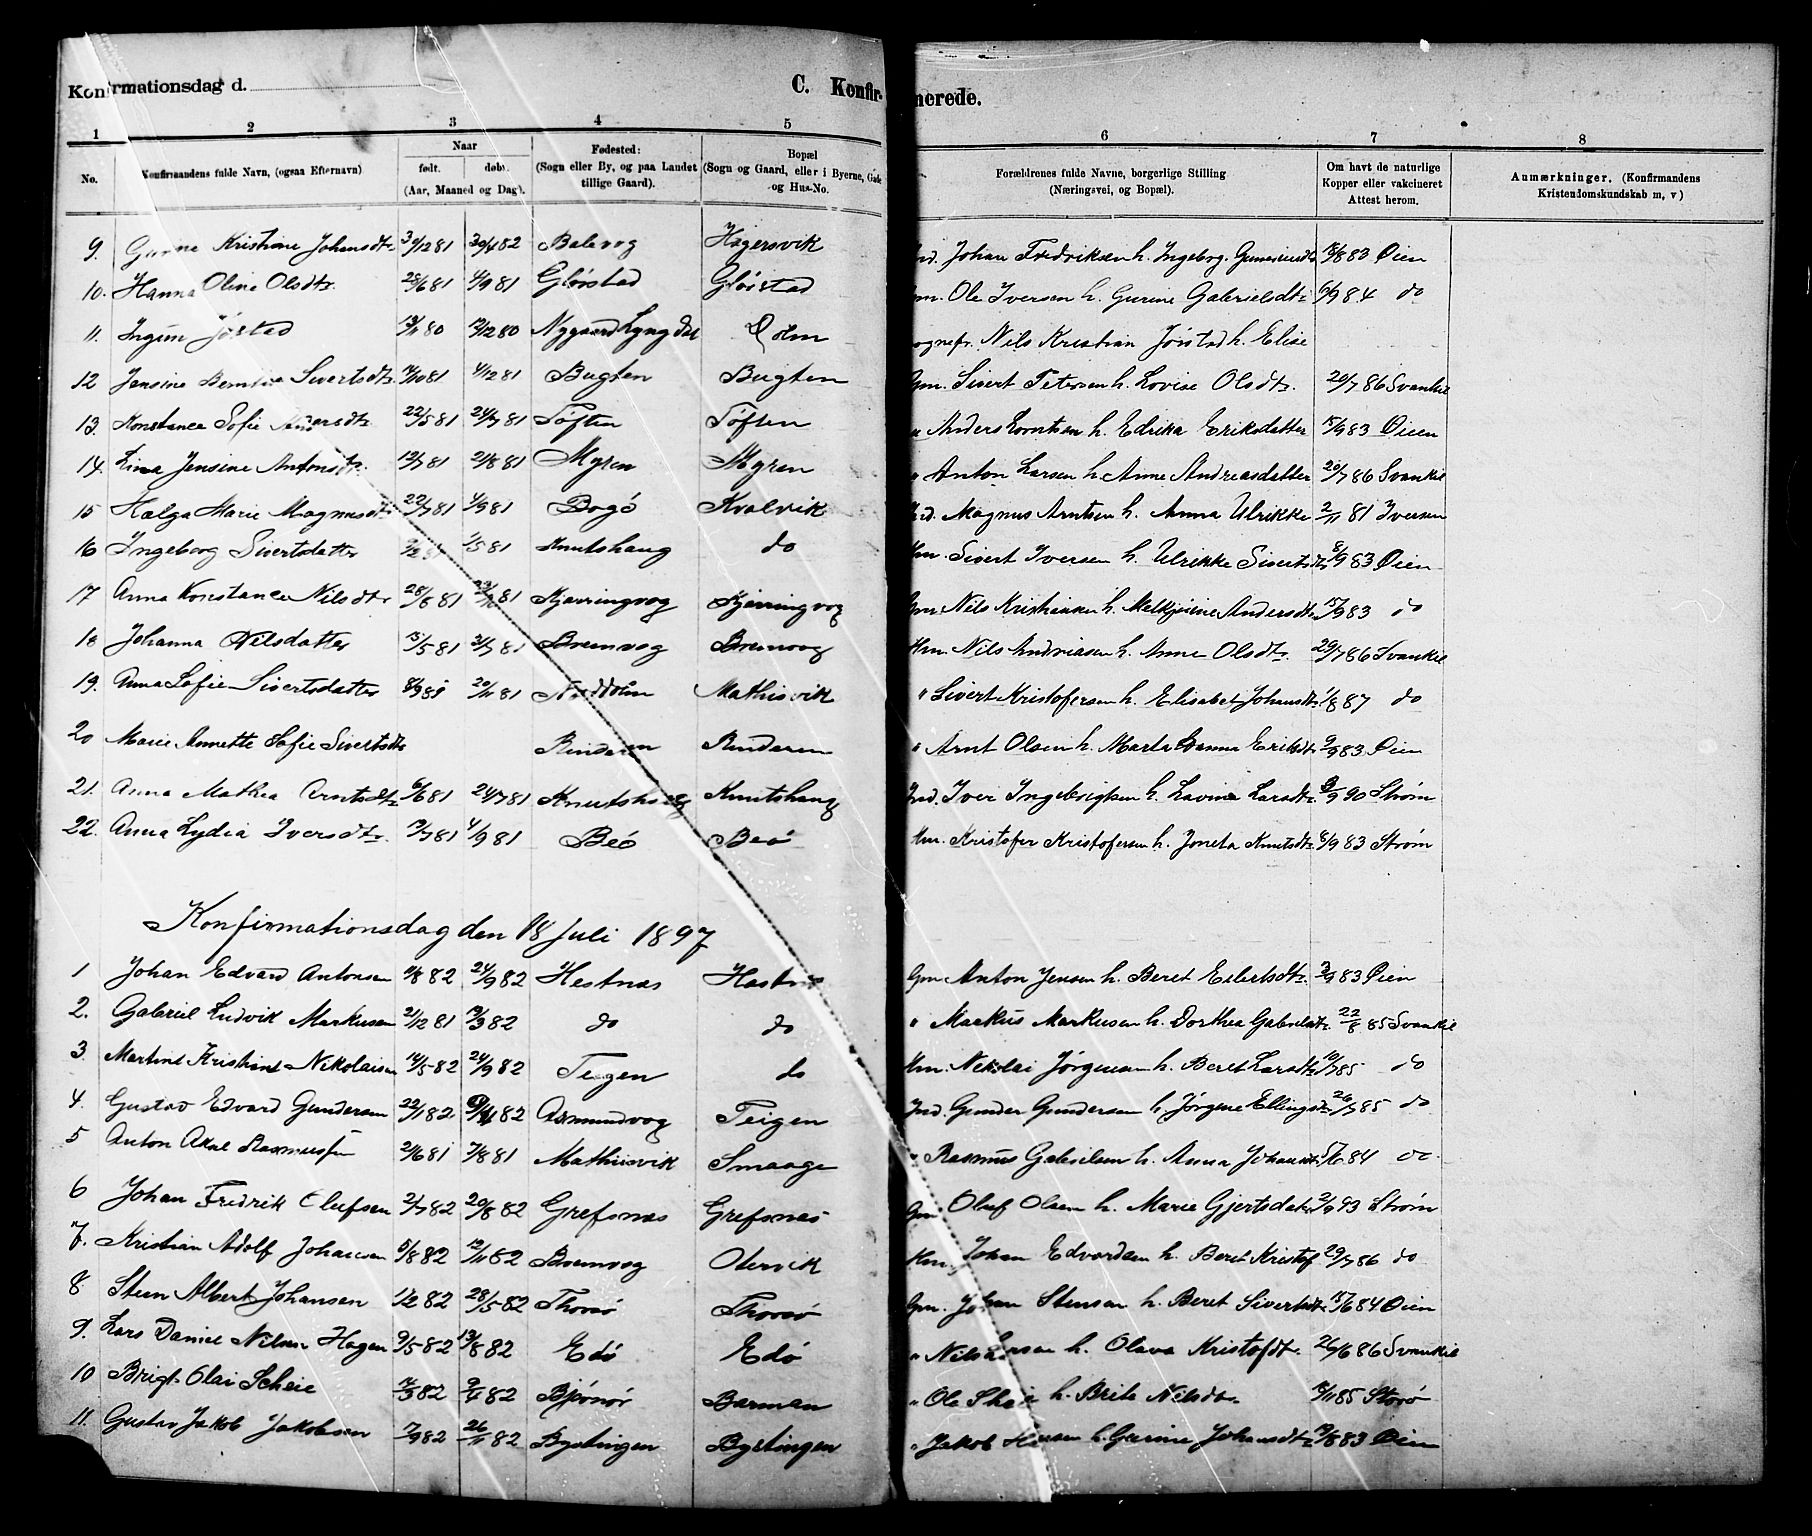 Konfirmationsdag d. C. Konfirmerede.
1 2 3 4 5 6 7 8
No. Konfirmandens fulde Navn, (ogsaa Efternavn) Naar født. døbt. (Aar, Maaned og Dag). Fødested: (Sogn eller By, og paa Landet tillige Gaard). Bopæl (Sogn og Gaard, eller i Byerne, Gade og Hus-No. Forældrenes fulde Navne, borgerlige Stilling (Næringsvei, og Bopæl). Om havt de naturlige Kopper eller vakcineret Attest herom. Anmærkninger. (Konfirmandens Kristendomskundskab m, v)
9. Kristine Johansdtr 82 Hagersvik Johan Fredriksen h. Ingeborg 83 Øien
10. Hanna Oline Olsdtr. 28/6 81 4/9 81 Glørstad Glørstad Ole Iversen h. Gurine Gabrielsdtr 84 do
11. Ingun Jøstad 80 12/12 80 Nygaard Lyngdal Holm Nils Kristian Jørstad h. Elise
12 Jensine Sivertsdtr 81 4/12 81 Bugten Bugten Gm. Sivert Petersen h. Lovise Olsdtr. 20/7 86 Svankil
13. Konstance Sofie 22/5 81 24/7 81 Tøften Tøften " Anders h. Edrika Eriksdatter 15/9 83 Øien
14. Lina Jensine Antonsdtr. 12/7 81 21/8 81 Myren Myren " Anton Larsen h. Anne Andreasdatter 20/7 86 Svankil
15 Helga Marie Magnusdtr 22/7 81 4/9 81 Bogø Kvalvik Ind. Magnus Arntsen h. Anna Ulrikke 2/11 81 Iversen
16 Ingeborg Sivertsdatter 1/5 81 Knutshaug do Hm. Sivert Iversen h. Ulrikke Sivertsdtr 83 Øien
17 Anna Konstance Nilsdtr 28/8 81 81 Kjerringvog Kjerringvog Gm. Nils Kristiansen h. Andersdtr 15/9 83 do
18 Johanna Nilsdatter 15/5 81 31/7 81 Bremvog Bremvog Hm. Nils Andreasen h. Anne Olsdtr. 20/7 86 Svankil
19. Anna Sofie Sivertsdatter 8/9 81 20/11 81 Mathisvik " Sivert Kristofersen h. Elisabet Johansdtr 1/8 87 do
20 Marie Annette Sofie Sivertsdtr Rindaren Rindaren " Arnt Olsen h. Marta Hanna Eriksdtr 83 Øien
21. Anna Mathea Arntsdtr 6/6 81 24/7 81 Knutshaug Knutshaug Ind. Iver Ingebrigtsen h. Lavina Larsdtr. 3/9 90 Strøm
22. Anna Lydia Iversdtr. 81 4/9 81 Beø Beø Hm. Kristofer Kristofersen h. Joneta Knutsdtr 83 Strøm
Konfirmationsdag den 18 Juli 1897
1 Johan Edvard Antonsen 82 24/9 82 Hestnes Hestnes Gm Anton Jensen h. Beret Eilertsdtr. 3/9 83 Øien
2. Gabriel Ludvik Markusen 21/12 81 19/3 82 do do " Markus Markusen h. Dorthea Gabrielsdtr. 22/8 85 Svankil
3. Martin Kristian Nikolaisen 14/5 82 24/9 82 Teigen do Hm. Nikolai Jørgensen h. Beret Larsdtr 85 do
4. Gustav Edvard Gundersen 22/1 82 82 Asmundvog Teigen Ind. Gunder Gundersen h. Jørgine Ellingsdtr 26/7 85 do
5 Anton Axel Rasmussen 81 7/8 81 Mathisvik Smaage " Rasmus Gabrielsen h. Anna Johansdtr 84 do
6 Johan Fredrik Olufsen 82 20/8 82 Grefsnes Grefsnes Gm Oluf Olsen h. Marie Gjertsdatr 93 Strøm
7. Kristian Adolf Johansen 5/8 82 12/11 82 Bremvog Otervik Hm. Johan Edvardsen h. Beret Kristof 29/7 86 do
8 Steen Albert Johansen 82 28/5 82 Thorsø Thorsø Gm. Johan Stensen h. Beret Sivertsdtr 84 Øien
9. Lars Daniel Nilsen Hagen 9/5 82 13/8 82 Edø Edø " Nils Larsen h. Olava Kristofdtr. 26/6 86 Svankil
10 Brigt Olai Scheie 82 82 Bjørnør Barman " Ole h. Brite Nilsdtr. 85 Storø
11. Gustav Jakob Jakobsen 7/9 82 26/11 82 Bystingen Bystingen " Jakob h. Gurine Johansdtr 83 Øien